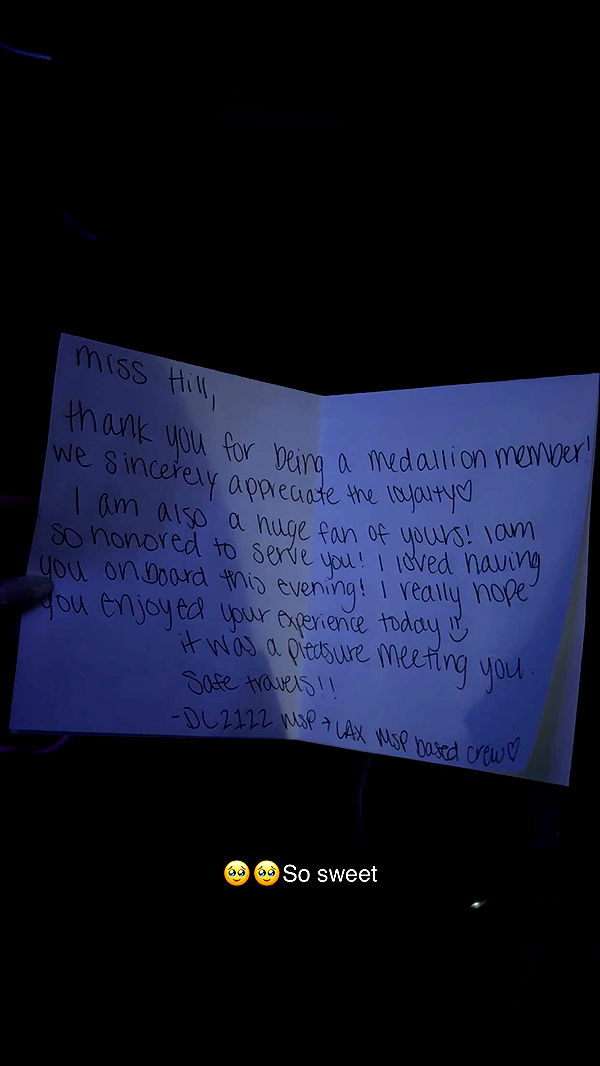 miss Hill,
thank you for being a medallion member!
we sincerely appreciate the loyalty♡
I am also a huge fan of yours! I am
so honored to serve you! I loved having
you onboard this evening! I really hope
you enjoyed your experience today!!
it was a pleasure meeting you.
Safe travels!!
-DL2122 MSP → LAX MSP based crew♡
🥹🥹So sweet